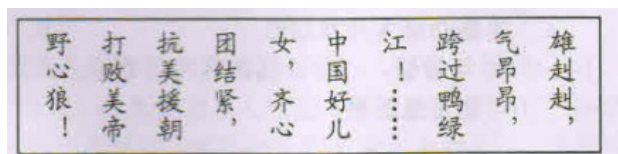 雄赳赳，
气昂昂，
跨过鸭绿
江……
中国好儿
女，齐心
团结紧，
抗美援朝
打败美帝
野心狼！